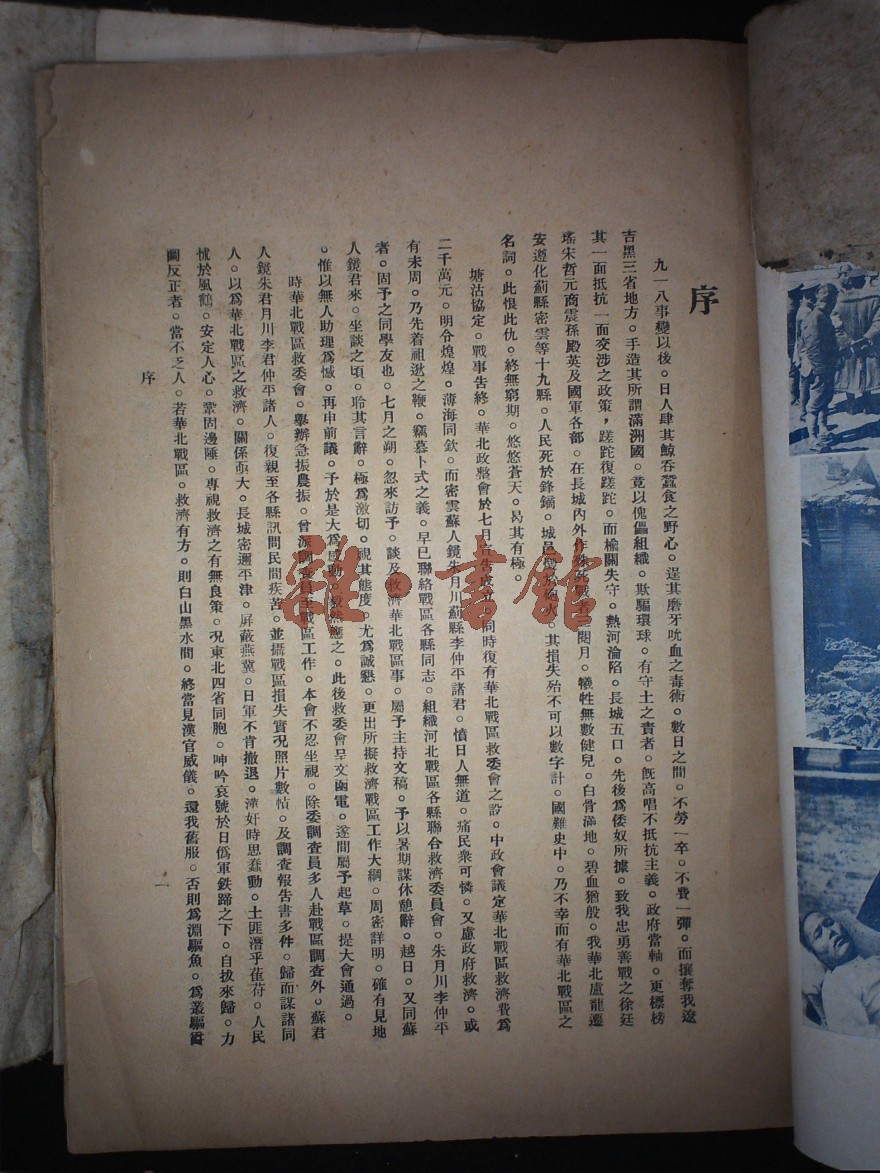 序
九一八事變以後。日人肆其鯨吞蠶食之野心。逞其磨牙吮血之毒術。數日之間。不勞一卒。不費一彈。而攘奪我遼
吉黑三省地方。手造其所謂滿洲國。竟以傀儡組織。欺騙環球。有守土之責者。旣高唱不抵抗主義。政府當軸。更標榜
其一面抵抗一面交涉之政策，蹉跎復蹉跎。而榆關失守。熱河淪陷。長城五口。先後爲倭奴所據。致我忠勇善戰之徐廷
瑤宋哲元商震孫殿英及國軍各部。在長城內外作殊死戰者三閱月。犧牲無數健兒。白骨滿地。碧血猶殷。我華北盧龍遷
安遵化薊縣密雲等十九縣。人民死於鋒鏑。城邑燬於砲火。其損失殆不可以數字計。國難史中。乃不幸而有華北戰區之
名詞。此恨此仇。終無窮期。悠悠蒼天。曷其有極。
塘沽協定。戰事告終。華北政整會於七月吿成立。同時復有華北戰區救委會之設。中政會議定華北戰區救濟費爲
二千萬元。明令煌煌。薄海同欽。而密雲蘇人鏡朱月川薊縣李仲平諸君。憤日人無道。痛民衆可憐。又慮政府救濟。或
有未周。乃先着祖逖之鞭。竊慕卜式之義。早已聯絡戰區各縣同志。組織河北戰區各縣聯合救濟委員會。朱月川李仲平
者。固予之同學友也。七月之朔。忽來訪予。談及救濟華北戰區事。屬予主持文稿。予以暑期謀休憩辭。越日。又同蘇
人鏡君來。坐談之頃。聆其言辭。極爲激切。視其態度。尤爲誠懇。更出所擬救濟戰區工作大綱。周密詳明。確有見地
。惟以無人助理爲憾。再申前議。予於是大爲感動。毅然應之。此後救委會呈文函電。遂間屬予起草。提大會通過。
時華北戰區救委會。舉辦急振農振。曾派調查員至戰區工作。本會不忍坐視。除委調查員多人赴戰區調查外。蘇君
人鏡朱君月川李君仲平諸人。復親至各縣訊問民間疾苦。並攝戰區損失實況照片數幀。及調查報告書多件。歸而謀諸同
人。以爲華北戰區之救濟。關係重大。長城密邇平津。屛蔽燕冀。日軍不肯撤退。漢奸時思蠢動。土匪潛乎萑苻。人民
怵於風鶴。安定人心。鞏固邊陲。專視救濟之有無良策。况東北四省同胞。呻吟哀號於日僞軍鉄蹄之下。自拔來歸。力
圖反正者。當不乏人。若華北戰區。救濟有方。則白山黑水間。終當見漢官威儀。還我舊服。否則爲淵驅魚。爲叢驅雀
序
一
雜·書館